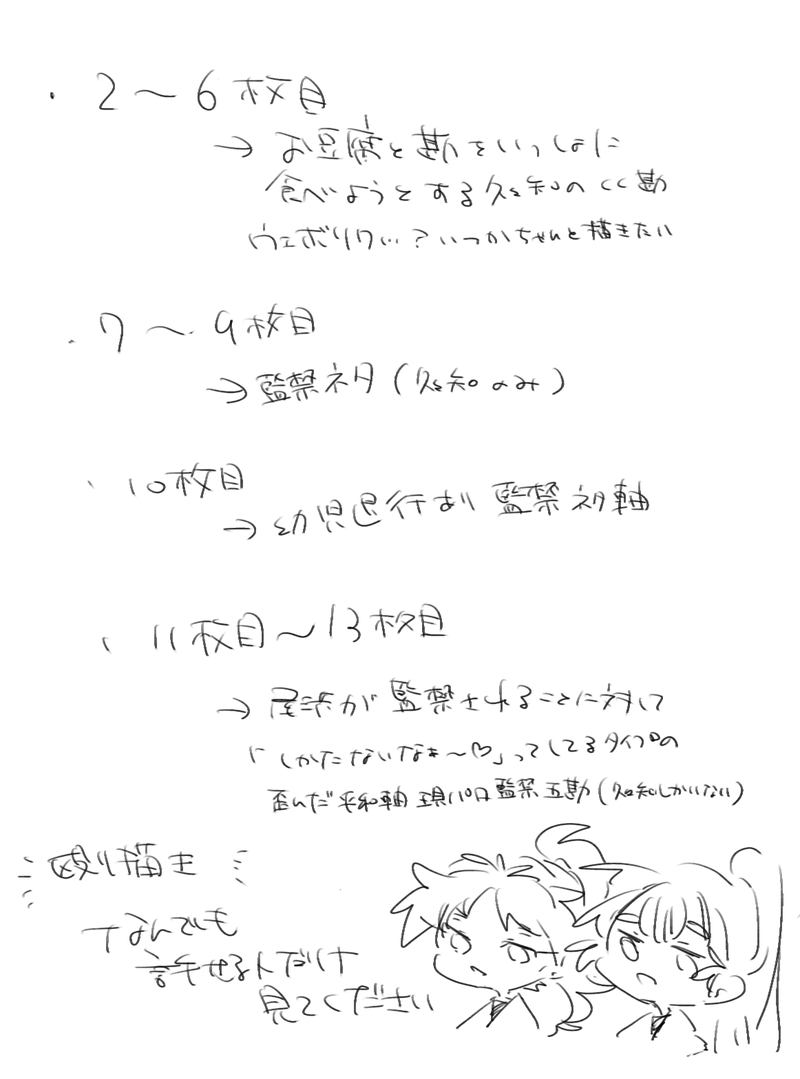 ・2〜6枚目
→お豆腐と勘をいっしょに
食べようとする久々知のくく勘
ウェボリクい…?いつかちゃんと描きたい
・7〜9枚目
→監禁ネタ(久々知のみ)
・10枚目
→幼児退行あり 監禁ネタ軸
・11枚目〜13枚目
→尾浜が監禁されることに対して
「しかたないなぁ〜♡」ってしてるタイプの
歪んだ平和軸 現パロ監禁五勘(久々知しかいない)
殴り描き
なんでも
許せる人だけ
見てください